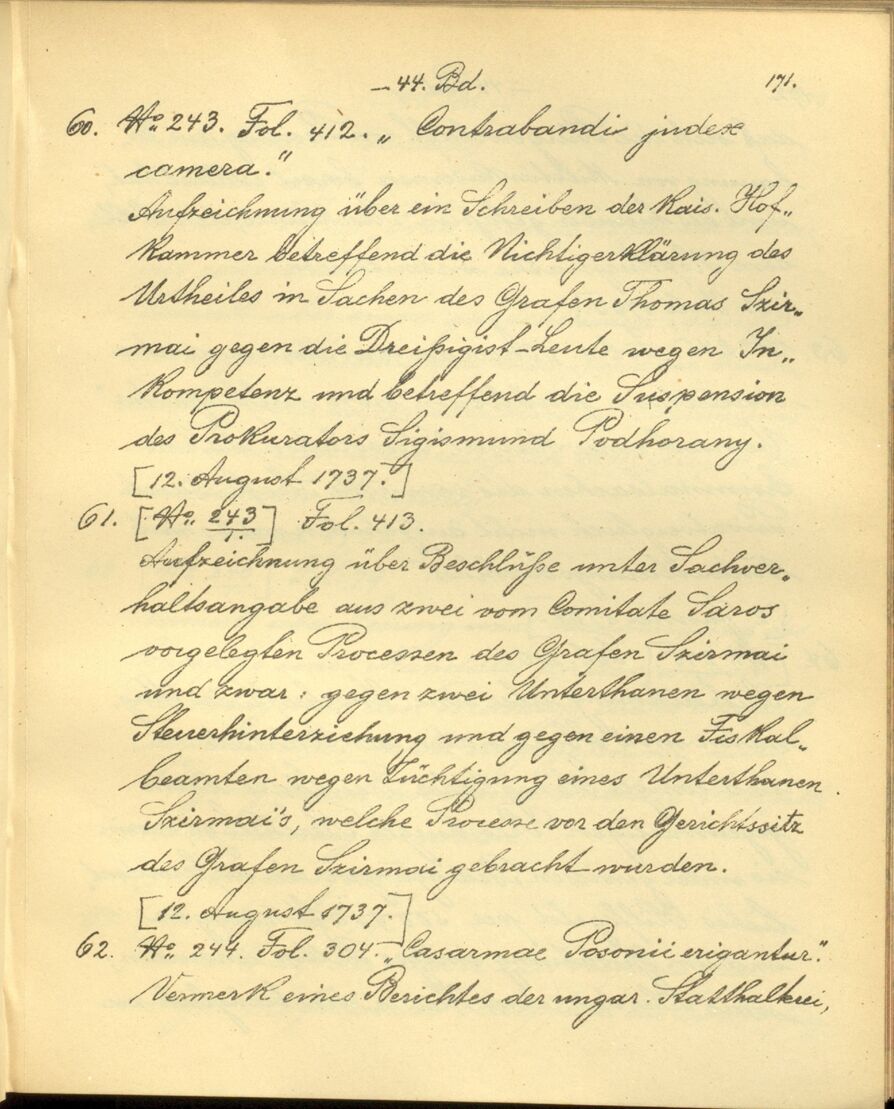 – 44. Bd. 171.
60. No. 243. Fol. 412. „Contrabandi judex
camera."
Aufzeichnung über ein Schreiben der Kais. Hof„
Kammer betreffend die Nichtigerklärung des
Urtheiles in Sachen des Grafen Thomas Szir„
mai gegen die Dreißigist-Leute wegen In„
Kompetenz und betreffend die Suspension
des Prokurators Sigismund Podhorany.
[12. August 1737.]
61. [No. 243/1.] Fol. 413.
Aufzeichnung über Beschlüße unter Sachver„
haltsangabe aus zwei vom Comitate Saros
vorgelegten Processen des Grafen Szirmai
und zwar: gegen zwei Unterthanen wegen
Steuerhinterziehung und gegen einen Fiskal„
beamten wegen Züchtigung eines Unterthanen
Szirmai's, welche Processe vor den Gerichtssitz
des Grafen Szirmai gebracht wurden.
[12. August 1737.]
62. No. 244. Fol. 304. „Casarmae Posonii erigantur".
Vermerk eines Berichtes der ungar. Statthalterei,